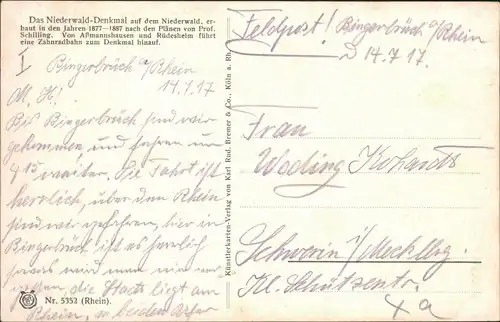 Das Niederwald-Denkmal auf dem Niederwald, er-
baut in den Jahren 1877—1887 nach den Plänen von Prof.
Schilling. Von Aßmannshausen und Rüdesheim führt
eine Zahnradbahn zum Denkmal hinauf.
I Bingerbrück a/Rhein
14.7.17
Bis Bingerbrück sind wir
gekommen und fahren um
4 15 weiter. Die Fahrt ist
herrlich, über den Rhein
sind wir gefahren, hier in
Bingerbrück ist es herrlich
die Stadt liegt am
Rhein, beiden
Nr. 5352 (Rhein).
Künstlerkarten-Verlag von Karl Rud. Bremer & Co., Köln a. Rh.
Feldpost! Bingerbrück a/Rhein
14.7.17.
Frau
Schwerin i/Mecklbg.
Kl. Schützenstr.
4a